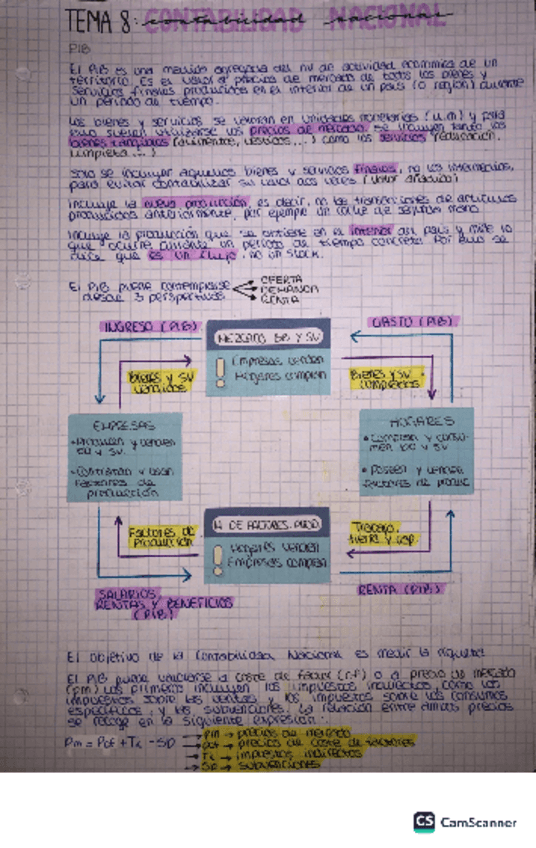 TEMA 8: CONTABILIDAD NACIONAL
PIB
El PIB es una medida agregada del nv de actividad económica de un
territorio. Es el valor a precios de mercado de todos los bienes y
servicios finales producidos en el interior de un país (o región) durante
un periodo de tiempo.
Los bienes y servicios se valoran en unidades monetarias (u.m) y para
ello suelen utilizarse los precios de mercado. Se incluyen tanto los
bienes tangibles (alimentos, vestidos,...) como los servicios (educación,
limpieza...)
Solo se incluyen aquellos bienes y servicios finales, no los intermedios,
para evitar contabilizar su valor dos veces (valor añadido)
Incluye la nueva producción, es decir, no las transacciones de artículos
producidos anteriormente, por ejemplo un coche de segunda mano
Incluye la producción que se obtiene en el interior del país y mide lo
que ocurre durante un periodo de tiempo concreto. Por ello se
dice que es un flujo, no un stock.
El PIB puede contemplarse
desde 3 perspectivas
OFERTA
DEMANDA
RENTA
INGRESO (PIB)
GASTO (PIB)
MERCADO BB Y SV
! Empresas venden
Hogares compran
Bienes y sv
vendidos
Bienes y sv
comprados
EMPRESAS
• Producen y venden
bb y sv.
• Contratan y usan
factores de
producción
HOGARES
• Compran y consu-
men bb y sv
• Poseen y venden
factores de produc
Factores de
producción
M. DE FACTORES. PROD.
! Hogares venden
Empresas compran
Trabajo,
tierra y cap.
SALARIOS,
RENTAS Y BENEFICIOS
(PIB)
RENTA (PIB)
El objetivo de la Contabilidad Nacional es medir la riqueza
El PIB puede valorarse a coste de factor (c.f) o a precio de mercado
(pm) los primeros incluyen los impuestos indirectos, como los
impuestos sobre las ventas y los impuestos sobre los consumos
específicos, y las subvenciones. La relación entre ambos precios
se recoge en la siguiente expresión:
Pm = Pcf + Ti - Sb
pm → precios de mercado
pcf → precios de coste de factores
Ti → impuestos indirectos
Sb → subvenciones
CS CamScanner